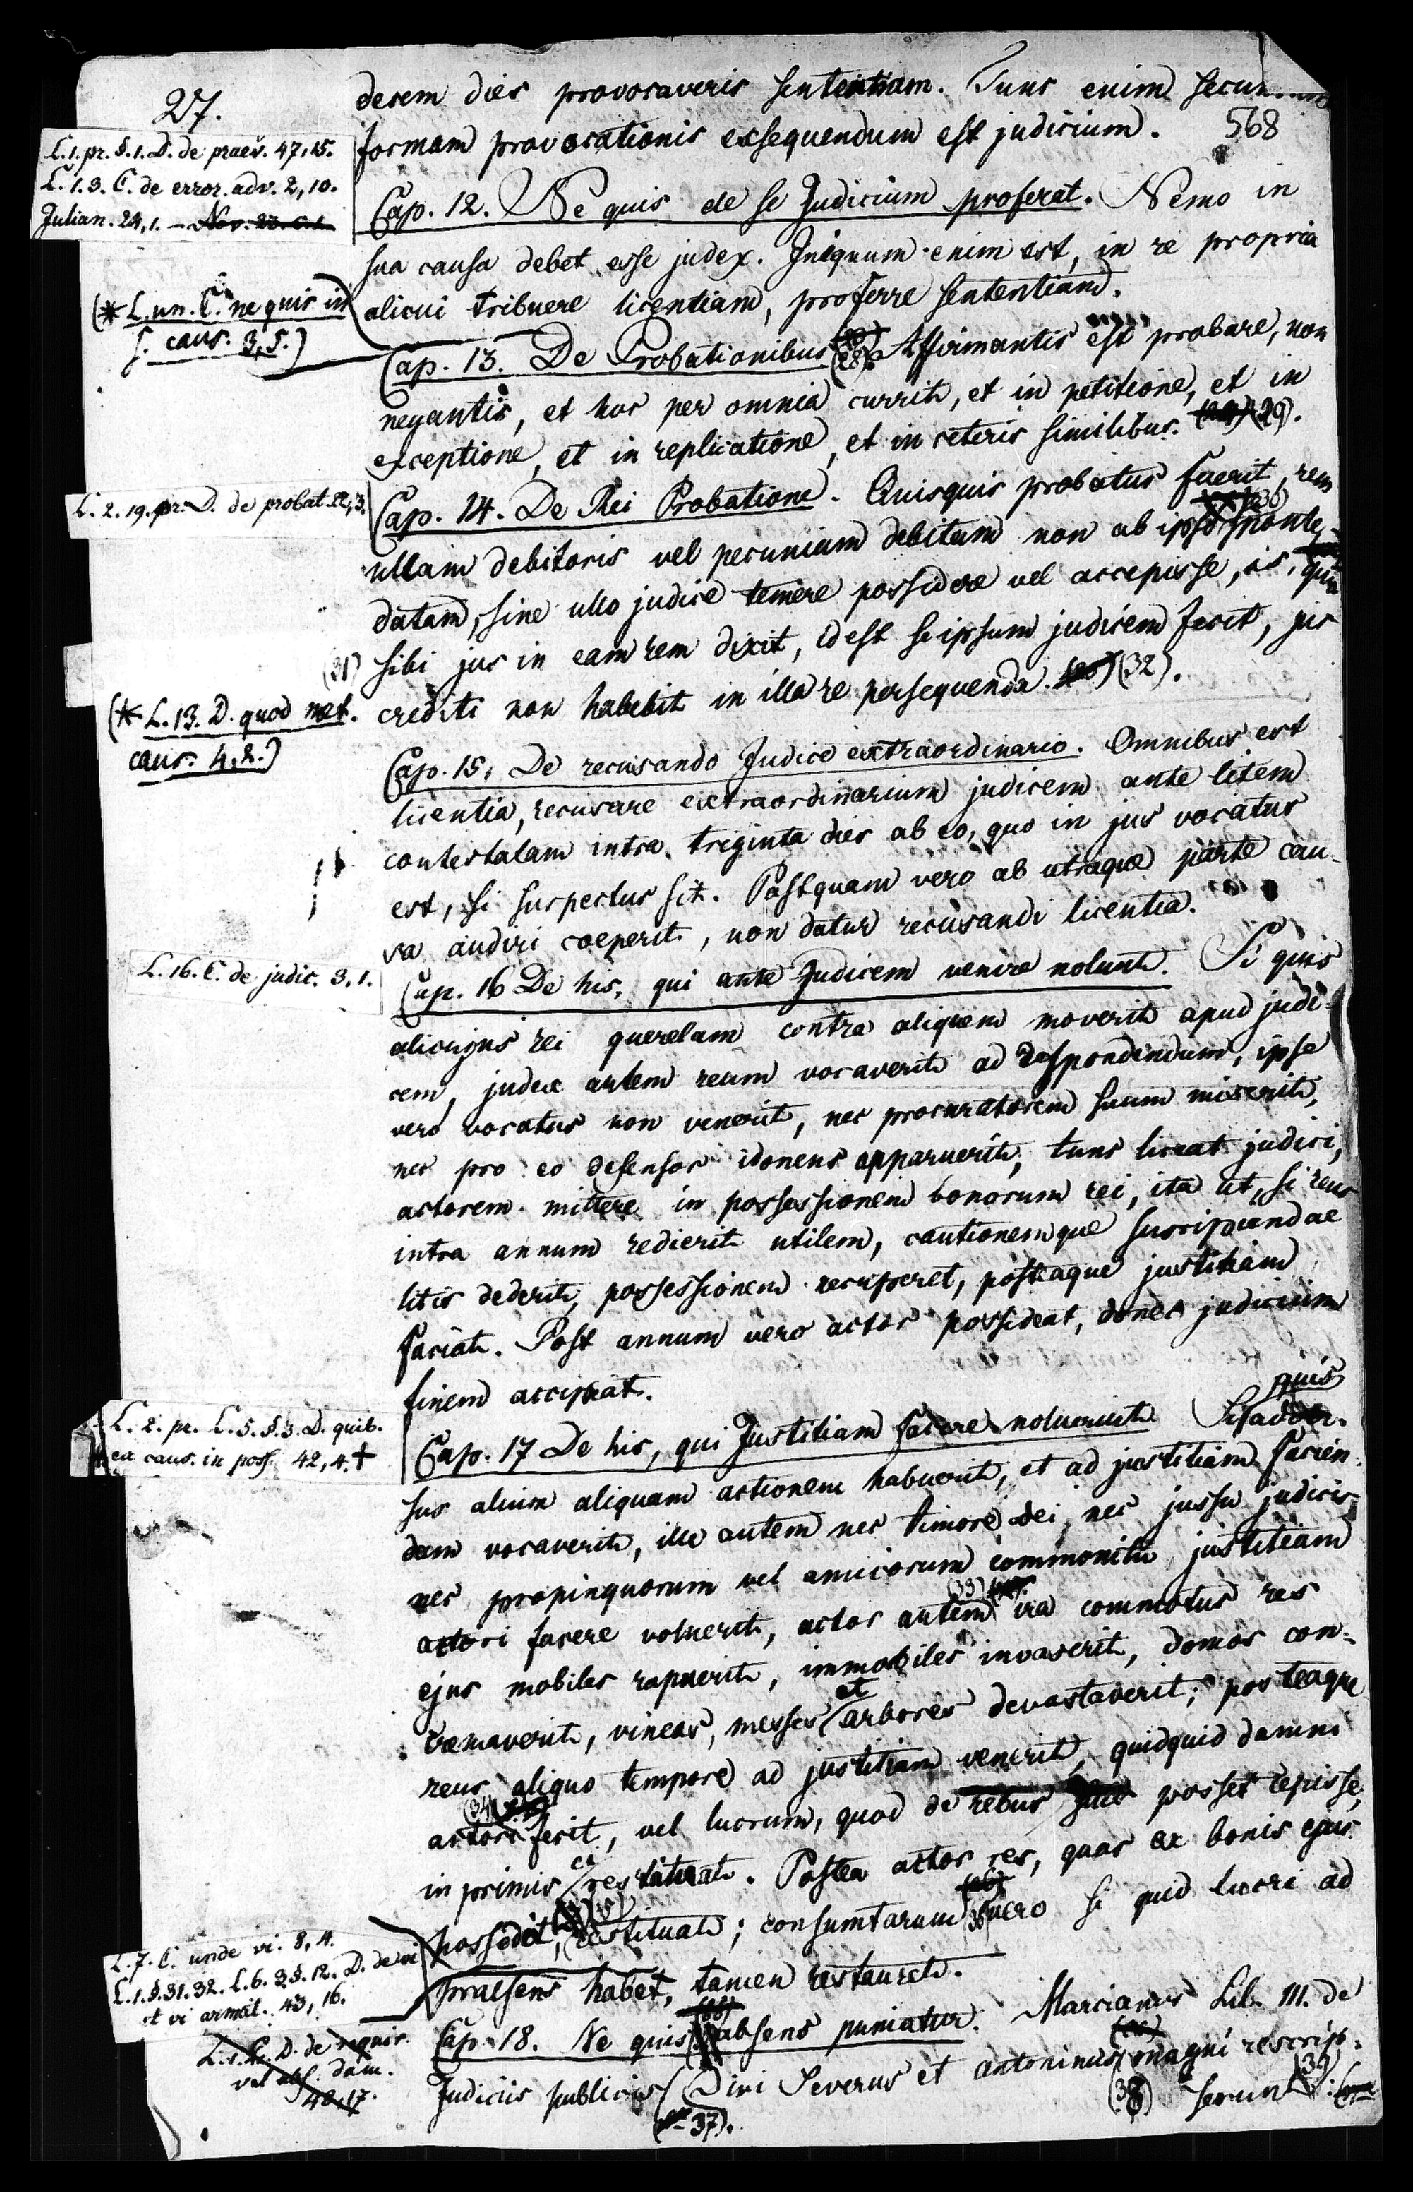 27.
568
decem dies provocaveris sententiam. Tunc enim secun
formam provocationis exsequendum est judicium.
L.1. pr. §.1. D. de praev. 47, 15.
L. 1. 3. C. de error. adv. 2, 10.
Julian. 24, 1. – Nov. 23. c. 1.
Cap. 12. Ne quis de se Judicium proferat. Nemo in
sua causa debet esse judex. Iniquum enim est, in re propria
alicui tribuere licentiam, proferre sententiam.
(* L. un. C. ne quis in
s. caus. 3, 5.)
Cap. 13. De Probationibus (28). Affirmantis est probare, non
negantis, et hoc per omnia currit, et in petitione, et in
exceptione, et in replicatione, et in ceteris similibus. (29).
L. 2. 19. pr. D. de probat. 22, 3.
Cap. 14. De Rei Probatione. Quisquis probatus fuerit, rem
ullam debitoris vel pecuniam debitam non ab ipso sponte (30)
datam, sine ullo judice temere possidere vel accepisse, is, qui
(31) sibi jus in eam rem dixit, id est se ipsum judicem fecit, jus
crediti non habebit in illa re persequenda (32).
(* L. 13. D. quod met.
caus. 4, 2.)
Cap. 15. De recusando Judice extraordinario. Omnibus est
licentia, recusare extraordinarium judicem ante litem
contestatam intra triginta dies ab eo, quo in jus vocatus
est, si suspectus sit. Postquam vero ab utraque parte cau-
sa audiri coeperit, non datur recusandi licentia.
L. 16. C. de judic. 3, 1.
Cap. 16 De his, qui ante Judicem venire nolunt. Si quis
alicujus rei querelam contra aliquem moverit apud judi-
cem, judex autem reum vocaverit ad respondendum, ipse
vero vocatus non venerit, nec procuratorem suum miserit,
nec pro eo defensor idoneus apparuerit, tunc liceat judici,
actorem mittere in possessionem bonorum rei, ita ut, si reus
intra annum redierit utilem, cautionemque suscipiendae
litis dederit, possessionem recuperet, posteaque justitiam
faciat. Post annum vero actor possideat, donec judicium
finem accipiat.
L. 2. pr. L. 5. §. 3. D. quib.
ex caus. in poss. 42, 4. +
Cap. 17 De his, qui Justitiam facere noluerunt. Si quis adver-
sus alium aliquam actionem habuerit, et ad justitiam facien-
dam vocaverit, ille autem nec timore dei, nec jussu judicis
nec propinquorum vel amicorum commonitu justitiam
actori facere voluerit, actor autem (33) ira commotus res
ejus mobiles rapuerit, immobiles invaserit, domos con-
cremaverit, vineas, messes et arbores devastaverit; posteaque
reus aliquo tempore ad justitiam venerit, quidquid damni
actori (34) fecit, vel lucrum, quod de rebus posset cepisse,
in primis ei restituat. Postea actor res, quas ex bonis ejus
possedit, restituat; consumtarum vero si quid lucri ad
praesens habet, tamen restauret.
L. 7. C. unde vi. 8, 4.
L. 1. §. 31. 32. L. 6. 3 §. 12. D. de vi
et vi armat. 43, 16.
Cap. 18. Ne quis absens puniatur. Marcianus Lib. III. de
L. 1. D. de requir.
vel abs. dam.
48, 17.
Judiciis publicis (37). Divi Severus et Antoninus (38) magni rescrip-
serunt (39):